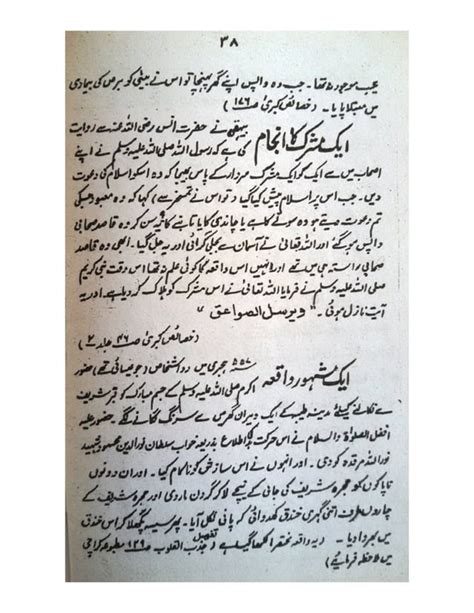 ۳۸
عیب موجود نہ تھا۔ جب وہ واپس اپنے گھر پہنچا تو اس نے بیٹی کو برص کی بیماری
میں مبتلا پایا۔ (خصائص کبریٰ صـ ۱۷۶)
ایک مشرک کا انجام بیہقی نے حضرت انس رضی اللہ عنہ سے روایت
کی ہے کہ رسول اللہ صلی اللہ علیہ وسلم نے اپنے
اصحاب میں سے ایک کو ایک مشرک سردار کے پاس بھیجا کہ وہ اسکو اسلام کی دعوت
دیں۔ جب اس پر اسلام پیش کیا گیا، تو اس نے تمسخر سے کہا کہ وہ معبود جسکی
تم دعوت دیتے ہو وہ سونے کا ہے یا چاندی کا یا تانبے کا؟ یہ سن کر وہ قاصد صحابی
واپس ہو گئے اور اللہ تعالیٰ نے آسمان سے بجلی گرائی اور یہ جل گیا۔ ابھی وہ قاصد
صحابی راستہ ہی میں تھے اور انہیں اس واقعہ کا کوئی علم نہ تھا اس وقت نبی کریم
صلی اللہ علیہ وسلم نے فرمایا اللہ تعالیٰ نے اس مشرک کو ہلاک کر دیا ہے۔ اور یہ
آیت نازل ہوئی۔ " ویرسل الصواعق "
(خصائص کبریٰ صـ ۴۶ جلد ۲)
ایک مشہور واقعہ ۵۵۷ ہجری میں دو اشخاص (جو عیسائی تھے) حضور
اکرم صلی اللہ علیہ وسلم کے جسم مبارک کو قبر شریف
سے نکالنے کیلئے مدینہ طیبہ کے ایک ویران گھر میں سے سرنگ لگانے لگے حضور علیہ
افضل الصلوٰۃ والسلام نے اس حرکت کی اطلاع بذریعہ خواب سلطان نور الدین محمود شہید
نور اللہ مرقدہ کو دی۔ اور انہوں نے اس سازش کو ناکام کیا۔ اور ان دونوں
ناپاکوں کو حجرہ شریف کی جالی کے نیچے لا کر گردن مار دی اور حجرہ شریف کے
چاروں طرف اتنی گہری خندق کھدوائی کہ پانی نکل آیا۔ پھر سیسہ پگھلا کر اس خندق
میں بھروا دیا۔ یہ واقعہ مختصراً لکھا گیا ہے تفصیل جذب القلوب صـ ۱۲۶ مطبوعہ کراچی
میں ملاحظہ فرمائیے)